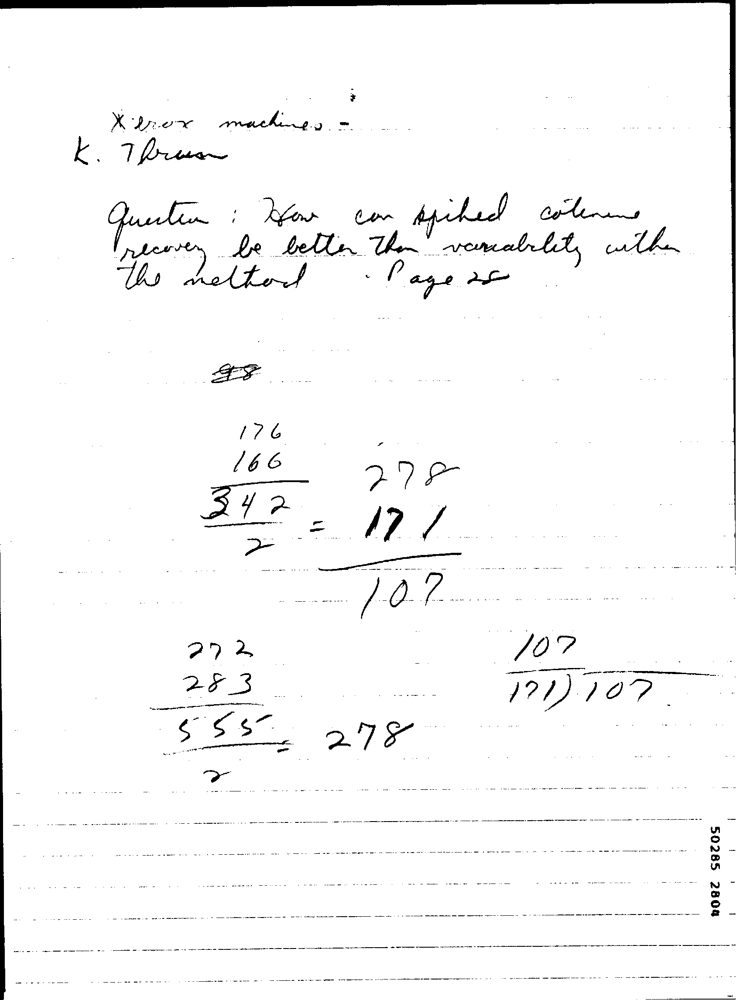 Xerox machines -
K.
Question : How can spiked cotinine
recovery be better than variability within
the method . Page 25
98
176
166
342
2
=
278
171
107
272
283
555
2
= 278
107
171) 107
50285 2804